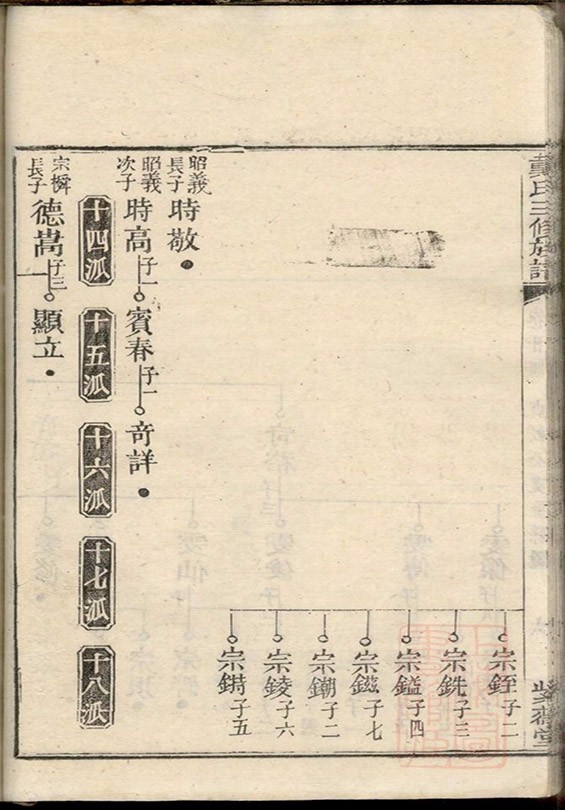 戴氏三修族譜
紫荷堂
宗銍子二
宗銑子三
宗鎰子四
宗鎡子七
宗鐗子二
宗錂子六
宗鏘子五
昭義長子時敬
昭義次子時高子一賓春子一奇詳
十四派
十五派
十六派
十七派
十八派
長子德嵩子三顯立